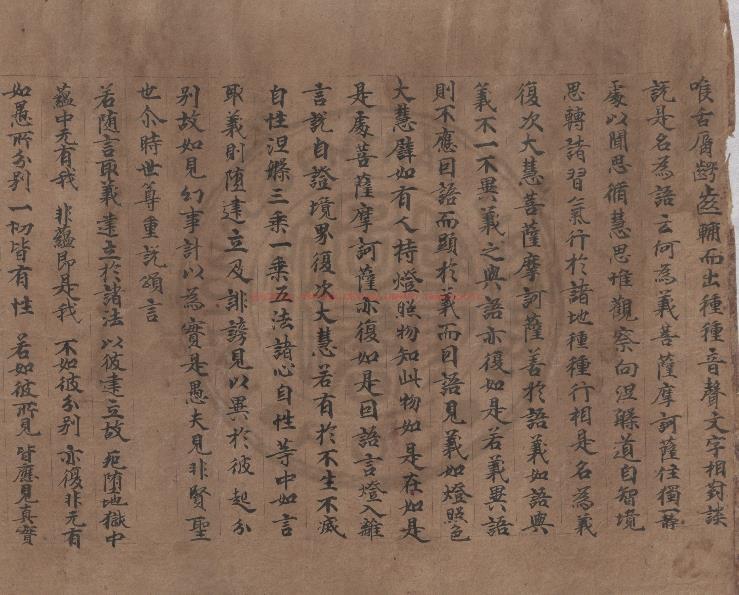 喉舌脣齶齒輔而出種種音聲文字相對談
說是名為語云何為義菩薩摩訶薩住獨一靜
處以聞思脩慧思惟觀察向涅槃道自智境
思轉諸習氣行於諸地種種行相是名為義
復次大慧菩薩摩訶薩善於語義知語與
義不一不異義之與語亦復如是若義異語
則不應因語而顯於義而因語見義如燈照色
大慧譬如有人持燈照物知此物如是在如是
是處菩薩摩訶薩亦復如是因語言燈入離
言說自證境界復次大慧若有於不生不滅
自性涅槃三乘一乘五法諸心自性等中如言
取義則墮建立及誹謗見以異於彼起分
別故如見幻事計以為實是愚夫見非賢聖
也尒時世尊重說頌言
若隨言取義 建立於諸法 以彼建立故 死墮地獄中
蘊中无有我 非蘊即是我 不如彼分別 亦復非无有
如愚所分別 一切皆有性 若如彼所見 皆應見真實